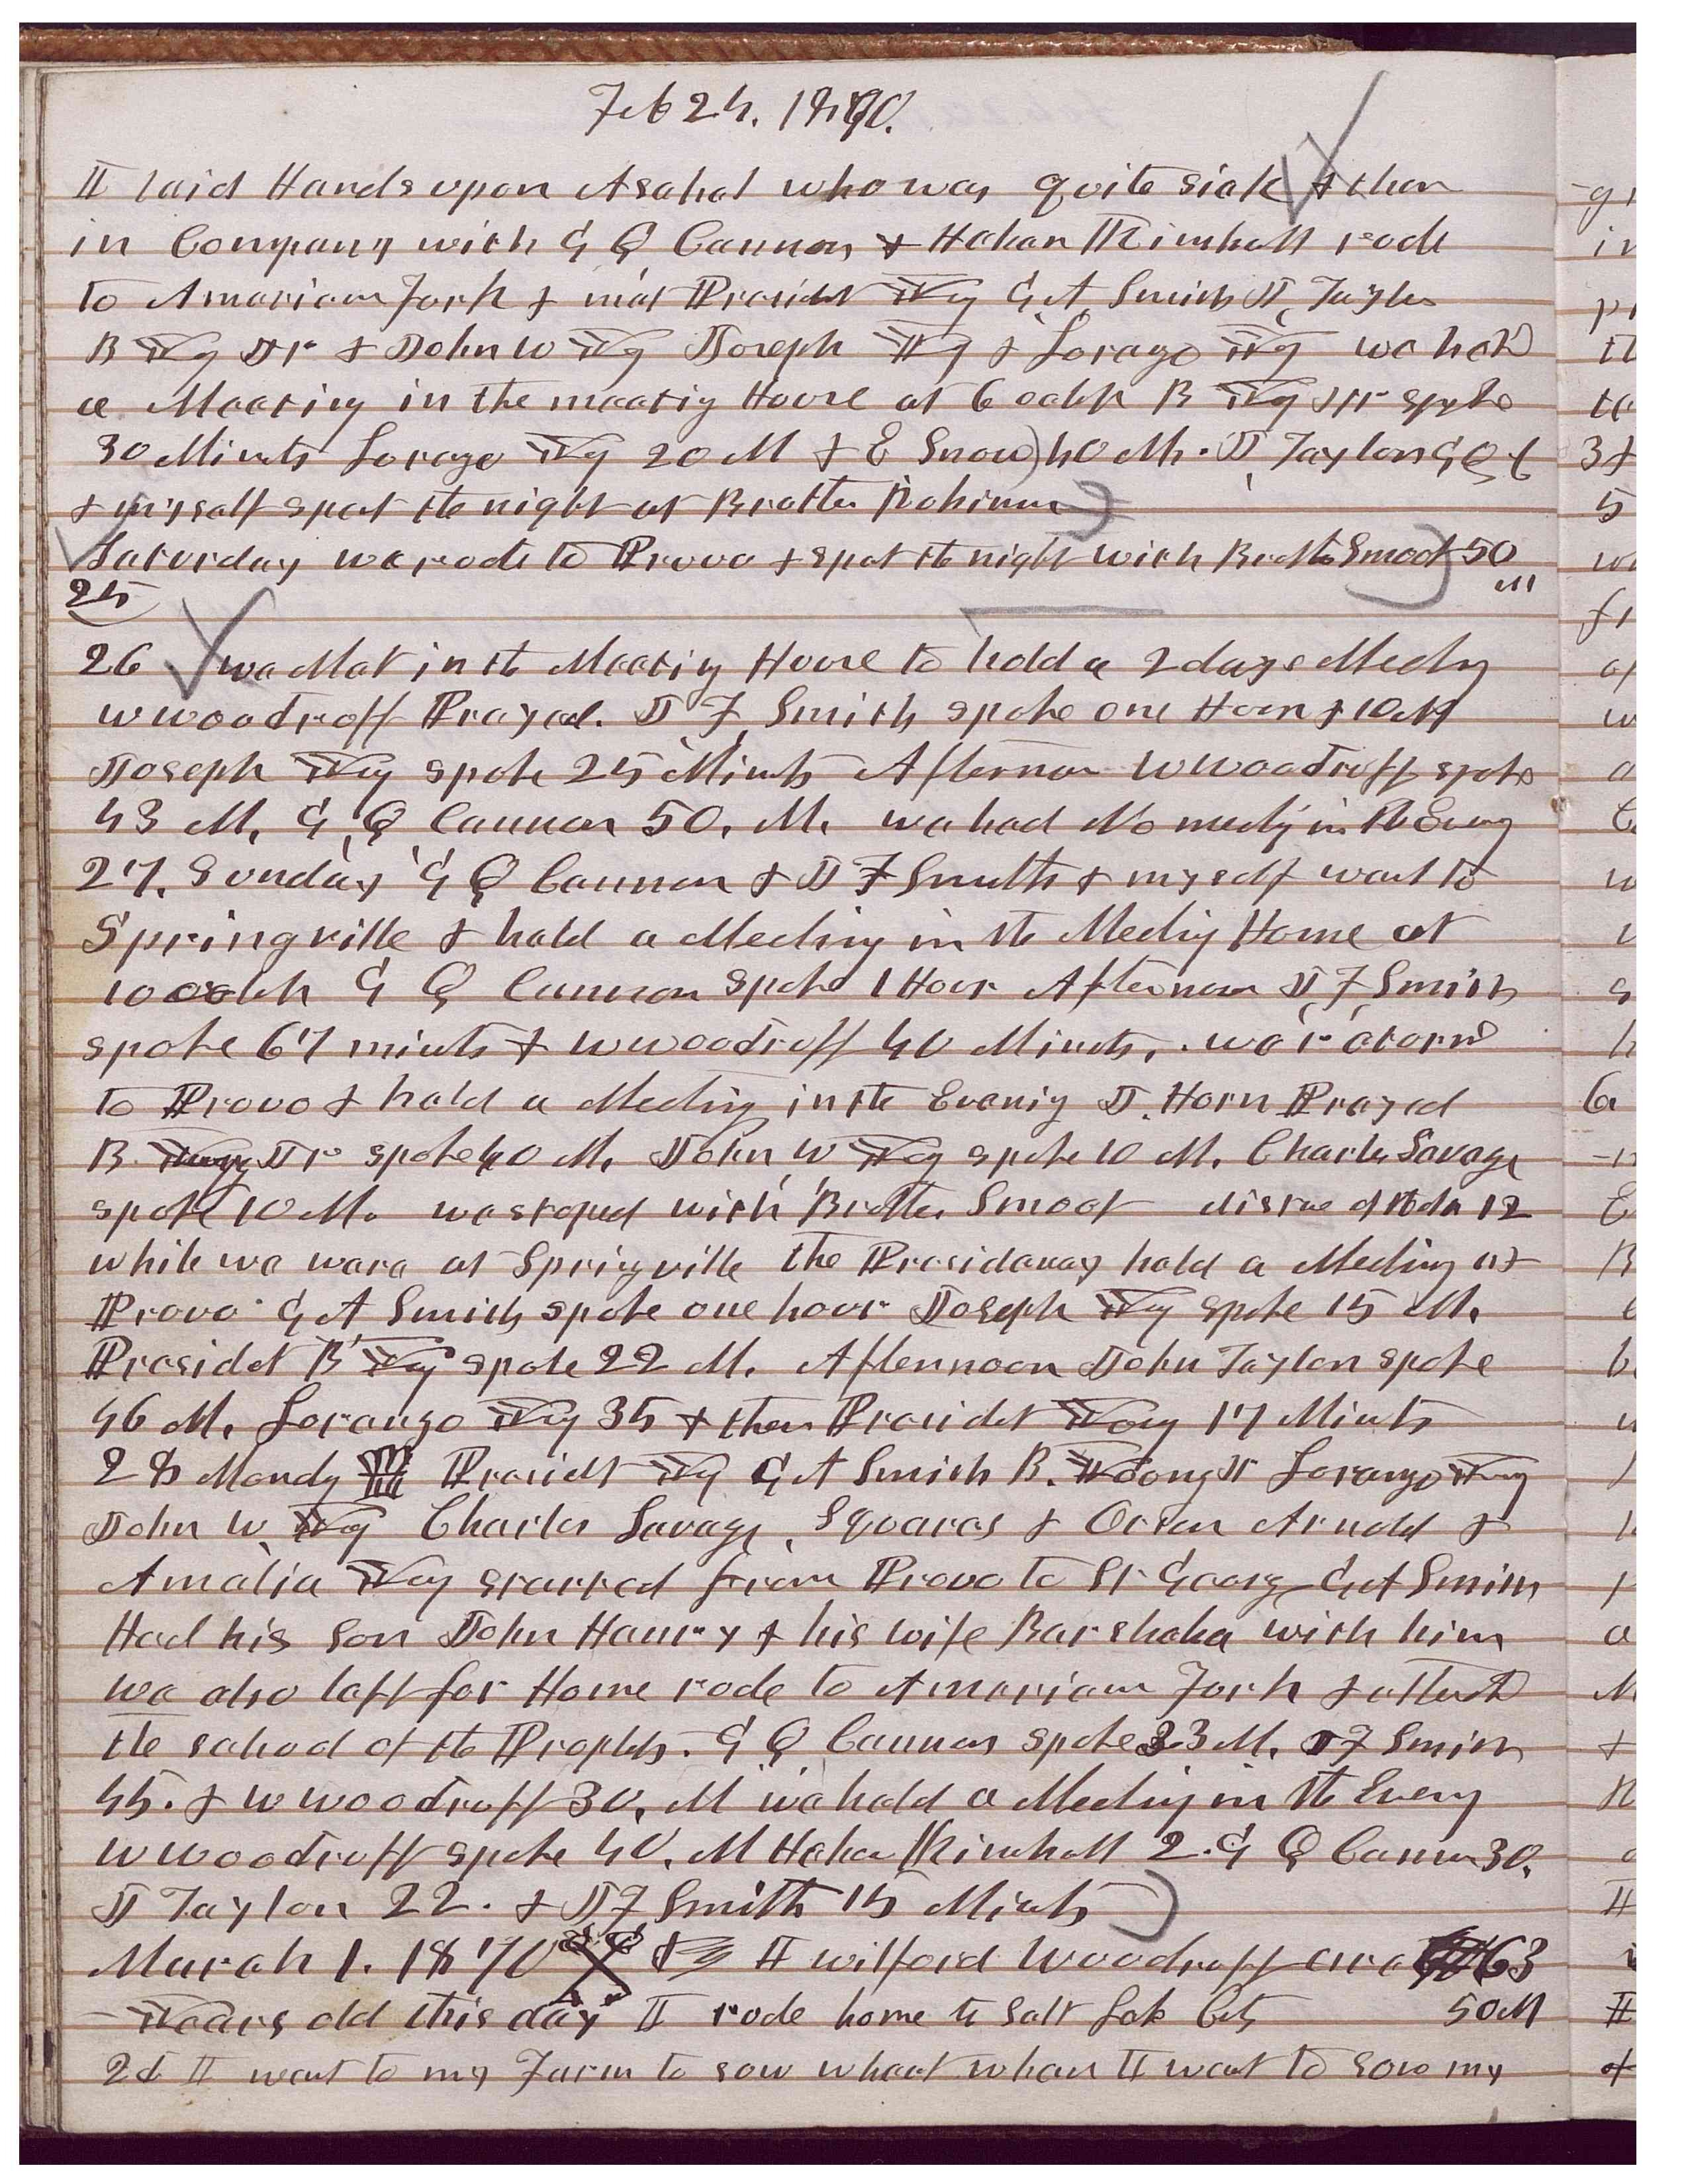 Feb 25. 1870.
I laid Hands upon Asahel who was quite sick & then
in Company with G Q Cannon & Heber Kimball rode
to American Fork & met Presidet Yg G A Smith J, Taylor
B Yg Jr & John W Yg Joseph Yg & Lorezo Yg we held
a Meeting in the meetig House at 6 oclok B Yg Jr spoke
30 Minuts Lorezo Yg 20 M & E Snow 40 M. J Taylor G Q C
& myself spet the night at Brother Robinson
Saturday we rode to Provo & spet the night with Brother Smoot 50
25 M
26 we Met in the Meetig House to hold a 2 days Meetig
W Woodruff Prayed. J F Smith spoke one Hour & 10 M
Joseph Yg spoke 25 Minuts Afternoon W Woodruff spoke
43 M, G Q Cannon 50, M. we had No meetig in the Eveng
27. Sunday G Q Cannon & J F Smith & myself went to
Springville & held a Meeting in the Meetig House at
10 oclok G Q Cannon spoke 1 Hour Afternoon J F Smith
spoke 67 minuts & W Woodruff 40 Minuts,. we retornd
to Provo & held a Meeting in the Evenig J. Horn Prayed
B. Young Jr spoke 40 M, John W Yg spoke 10 M. Charles Savage
spoke 10 M. we stoped with Brother Smoot distace of the day 12
while we ware at Sprigville the Presidency held a Meeting at
Provo G A Smith spoke one hour Joseph Yg spoke 15 M.
Presidet B Yg spoke 22 M. Afternoon John Taylor spoke
46 M, Loranzo Yg 35 & then Presidet Yog 17 Minuts
28 Mondy Presidet Yg G A Smith B. Yoong Jr Loranzo Yng
John W Yg Charles Savage, Squares & Orson Arnold &
Amelia Yog started from Provo to St Georg G A Smith
Had his son John Henry & his wife Barsheba with him
we also left for Home rode to American Fork & attend
the school of the Prophets. G Q Cannon spoke 33 M, J F Smith
45. & W Woodruff 30, M we held a Meeting in the Eveng
W Woodruff spoke 40, M Heber Kimball 2. G Q Cannon 30,
J Taylor 22. & J F Smith 15 Minuts
March 1. 1870 I Wilford Woodruff are 63
Years old this day I rode home to Salt Lake City 50 M
2d I went to my Farm to sow wheat when I went to sow my